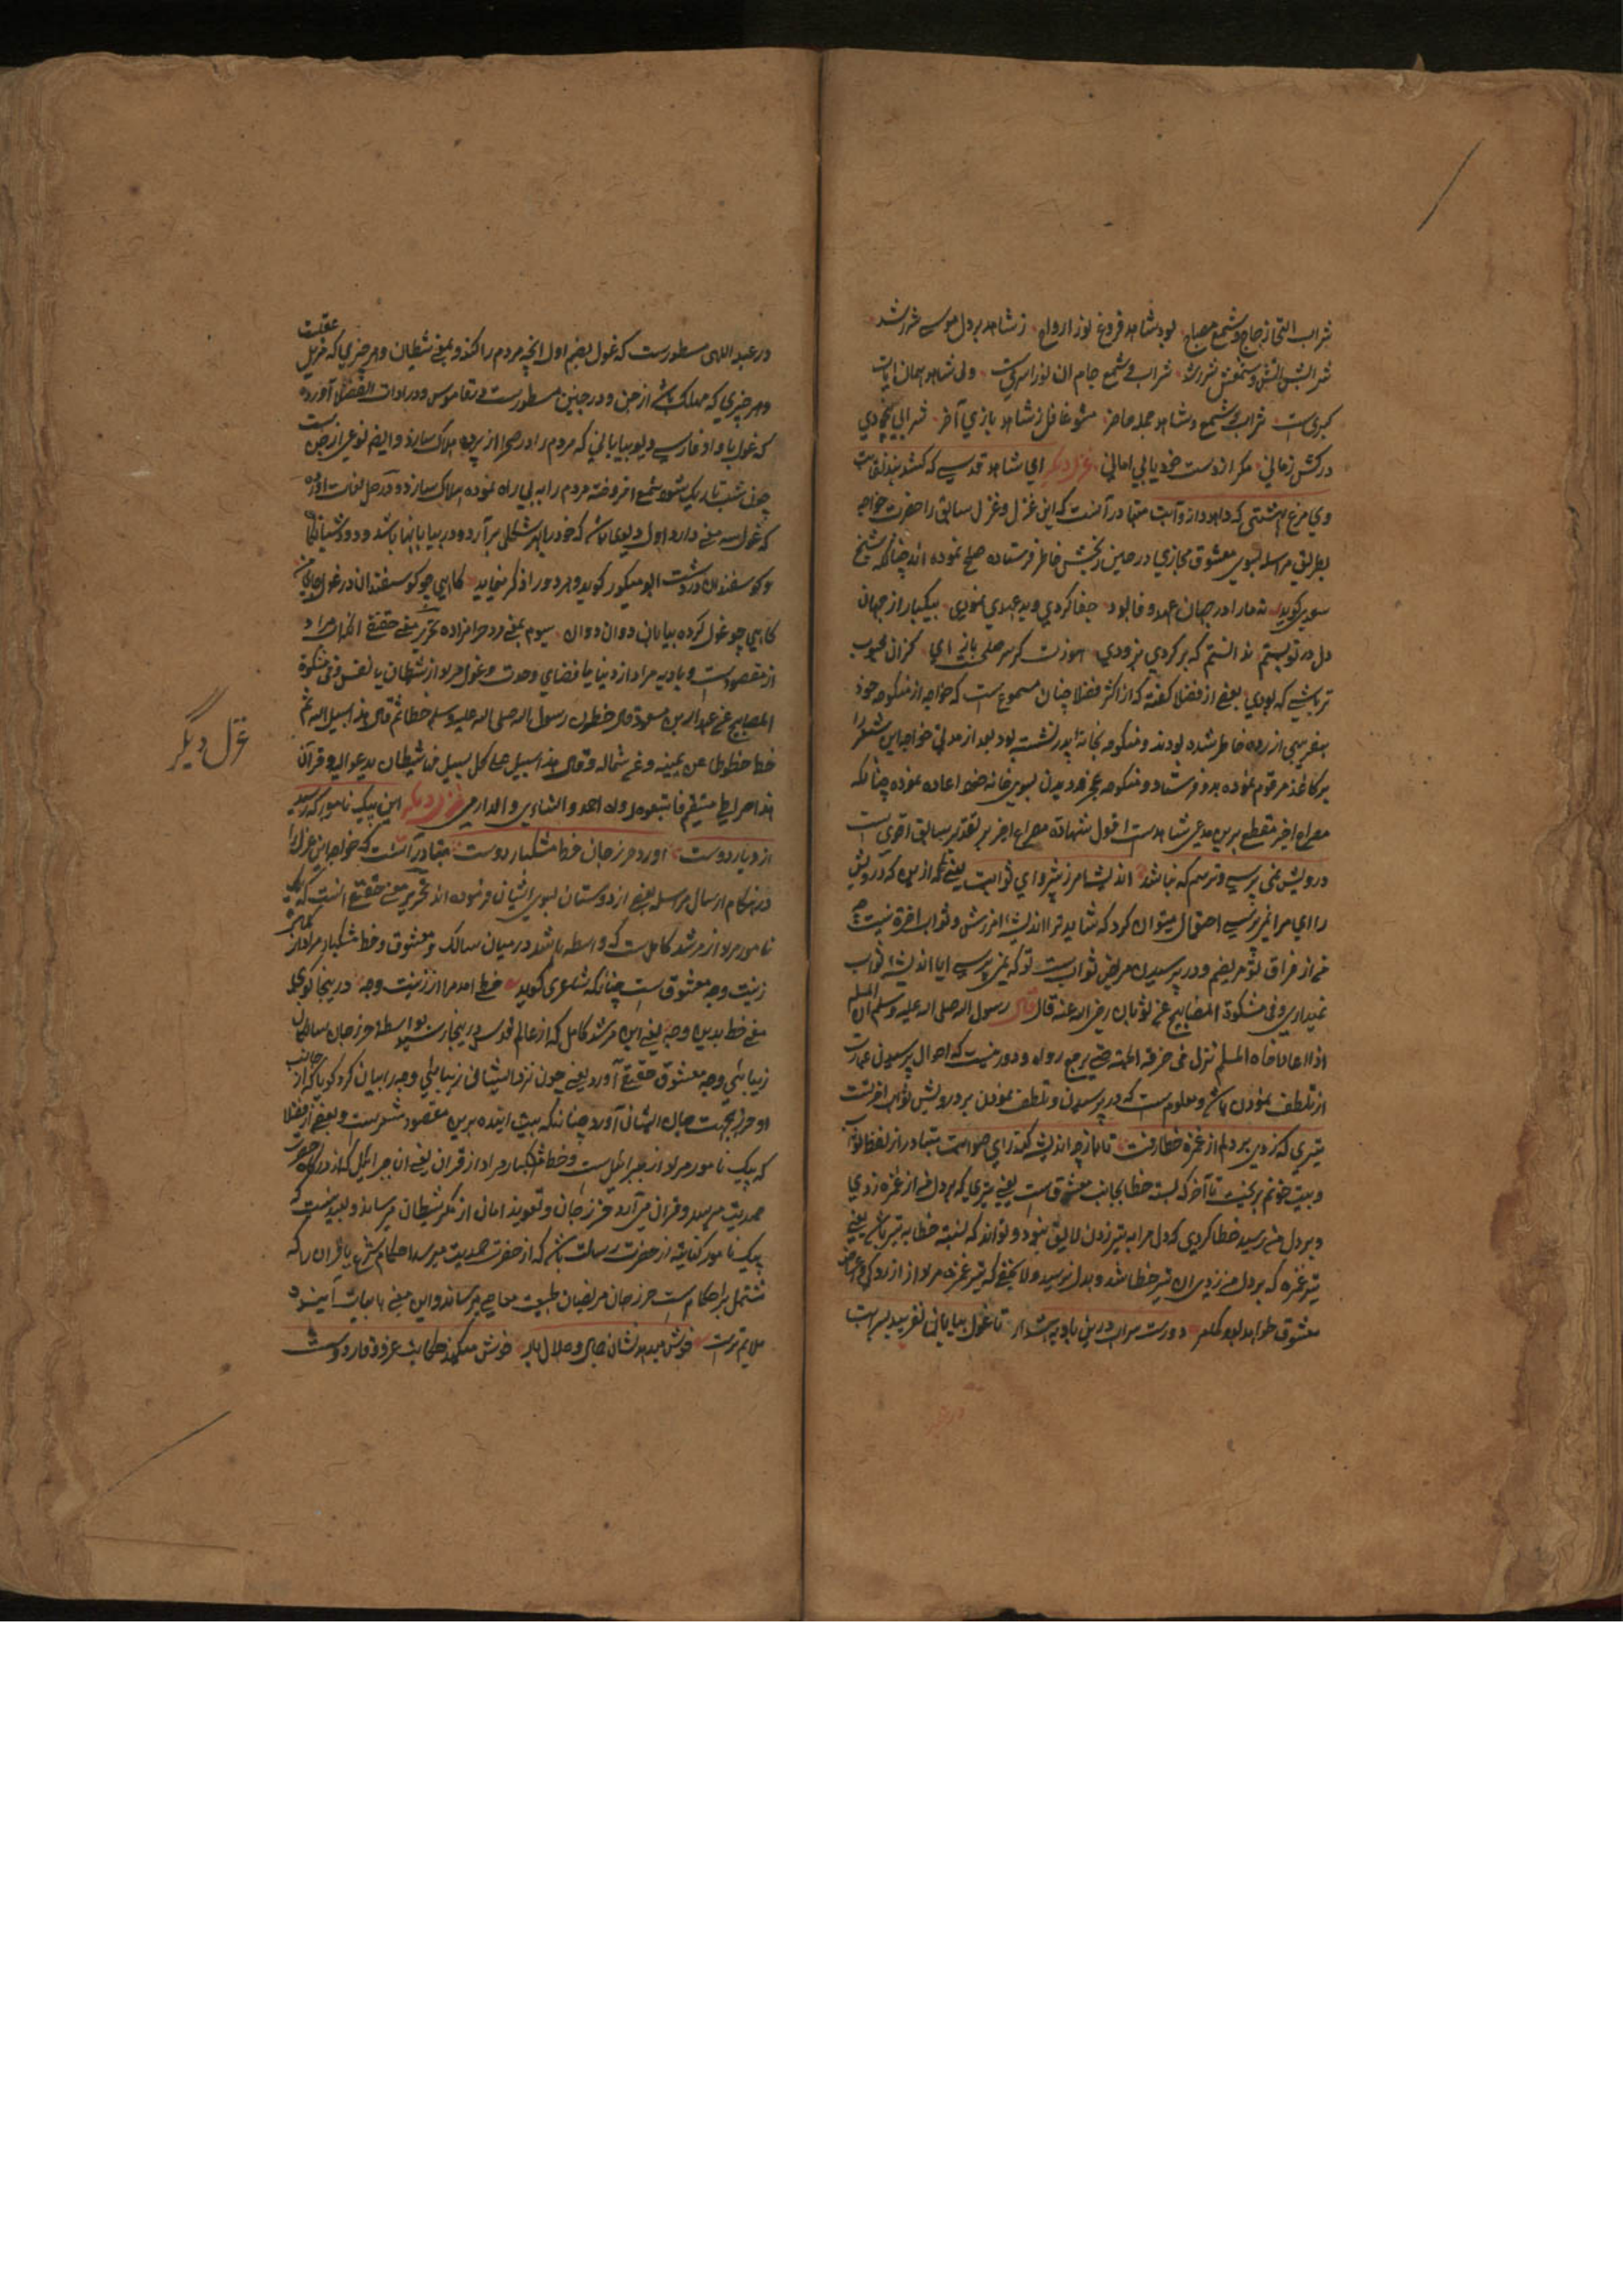 شراب اینجا زجاج و شمع مصباح بود شاهد فروغ نور ارواح ز شاهد بر دل موسی شرر شد
شرابش آتش و شمعش شجر شد شراب و شمع جام آن نور اسری است ولی شاهد همان آیات
کبری است شراب و شمع و شاهد جمله حاضر مشو غافل ز شاهد بازی آخر شراب بیخودی
درکش زمانی مگر از دست خود یابی امانی غزل دیگر ای شاهد قدسی که کشد بند نقابت
وی مرغ بهشتی که دهد دانه و آبت متبادر آنست که این غزل و غزل سابق را حضرت خواجه
بطریق مراسله بسوی معشوق مجازی در حین رنجش خاطر فرستاده صلح نموده اند چنانکه شیخ
سعدی گوید نه ما را در جهان عهد وفا بود جفا کردی و بدعهدی نمودی بیکبار از جهان
دل در تو بستم ندانستم که برگردی بزودی هنوزت گر سر صلحست بازای کزان محبوب
تر باشی که بودی بعضی از فضلا گفته که از اکثر فضلا چنان مسموع است که خواجه از منکوحه خود
بتقریبی آزرده خاطر شده بودند و منکوحه بخانه پدر نشسته بود بعد از مدتی خواجه این شعر را
بر کاغذ مرقوم نموده بدو فرستاد و منکوحه بمجرد دیدن بسوی خانه خود اعاده نموده چنانکه
مصراع اخیر مقطع برین مدعی شاهد است اقول شهادة مصراع اخیر بر تقدیر سابق اقوی است
درویش نمی پرسی و ترسم که نباشد اندیشه آمرزش و پروای ثوابت یعنی
را ای مرا نمی پرسی احتمال میتوان کرد که شاید ترا اندیشه آمرزش و ثواب آخرة نیست
من از فراق تو مریضم و در پرسیدن مریض ثوابست تو که نمی پرسی آیا اندیشه ثواب
نمیداری و فی مشکوة المصابیح عن ثوبان رضی الله عنه قال قال رسول الله صلی الله علیه وسلم ان المسلم
اذا عاد اخاه المسلم لم یزل فی خرفة الجنة حتی یرجع رواه و دور نیست که احوال پرسیدن عبارت
از تلطف نمودن باشد و معلومست که در پرسیدن و تلطف نمودن بر درویش ثواب آخرتست
تیری که زدی بر دلم از غمزه خطا رفت تا باز چه اندیشه کند رای صوابت متبادر از لفظ
و بیت خونم بریخت تا آخر که بسته خطا بجانب معشوق است یعنی تیری که بر دل من از غمزه زدی
و بر دل من نرسید خطا کردی که دل مرا به تیر زدن لایق نبود و تواند که نسبت خطا به تیر باشد یعنی
تیر غمزه که بر دل من زدی آن تیر خطا شد و بدل نرسید ولا یخفی که تیر غمزه مراد از
معشوق خواهد بود دورست سر آب درین بادیه هشدار تا غول بیابان نفریبد بسرابت
در عبد اللهی مسطورست که غول بضم اول آنچه مردم را کند و بمعنی شیطان و هر چیزی که مزیل عقلست
و هر چیزی که مهلک باشد از جن و در جنین مسطورست در قاموس و در ادات الفضلا آورده است
که غول با واو فارسی دیو بیابانی که مردم را در صحرا از برده هلاک سازد و ایضم نوعی از جن
چون شب تاریک شود شمع افروخته مردم را به بی راه نموده هلاک سازد و در حل لغات آورده
که غول سه معنی دارد اول دیوی باشد که خود را بهر شکل بر آرد و در بیابانها باشد و دوم
و گوسفندان در دشت گوید و هر دو را ذکر نماید گاهی چو گوسفندان در غول جای من
گاهی چو غول کرده بیابان دوان دوان سیوم بمعنی حرامزاده تحریر معنی حقیقی آنکه مراد
از مقصودست و بادیه مراد از دنیا یا فضای وحدت و غول مراد از شیطان یا نفس و فی مشکوة
المصابیح عن عبد الله بن مسعود قال خط لنا رسول الله صلی الله علیه وسلم خطا ثم قال هذا سبیل الله ثم
خط خطوطا عن یمینه و عن شماله و قال هذا سبیل علی کل سبیل من شیطان یدعو الیه و قرأ ان
هذا صراطی مستقیم فاتبعوه رواه احمد والنسائی والدارمی غزل دیگر این پیک نامور که رسید
از دیار دوست آورد حرز جان ز خط مشکبار دوست متبادر آنست که خواجه این غزل را
در هنگام ارسال مراسله بعضی از دوستان بسوی ایشان فرموده اند تحریر معنی حقیقی آنست که پیک
نامور مراد از مرشد کامل است که واسطه باشد در میان سالک و معشوق و خط مشکبار مراد از
زینت وجه معشوق است چنانکه شاعری گوید خط امد مرا از زینت وجه درینجا گوی
معنی خط بدین وجه یعنی این مرشد کامل که از عالم قدس درینجا رسید بواسطه حرز جان سالکان
زیبائی وجه معشوق حقیقی آورد یعنی چون نزد ایشان از زیبائی وجه را بیان کرد گویا که از جانب
او حرز بجهت جان ایشان آورد چنانکه بیت آینده برین مقصود مشعرست و بعضی از فضلا
که پیک نامور مراد از جبرائیل است و خط مشکبار مراد از قرآن یعنی آن جبرائیل که از درگاه حضرت
صمدیت میرسد و قرآن می آرد حرز جان و تعویذ امان از مکر شیطان میرساند و بعید نیست که
پیک نامور کنایة از حضرت رسالت باشد که از حضرت صمدیت میرسد احکام شرع یا قرآن را که
مشتمل بر احکام است حرز جان مریضان طبیعت معاصی میرساند و این معنی با ابیات آینده
ملایم ترست خوش میدهد نشان جلال و جمال یار خوش میکند حکایت عز و وقار دوست
غزل دیگر